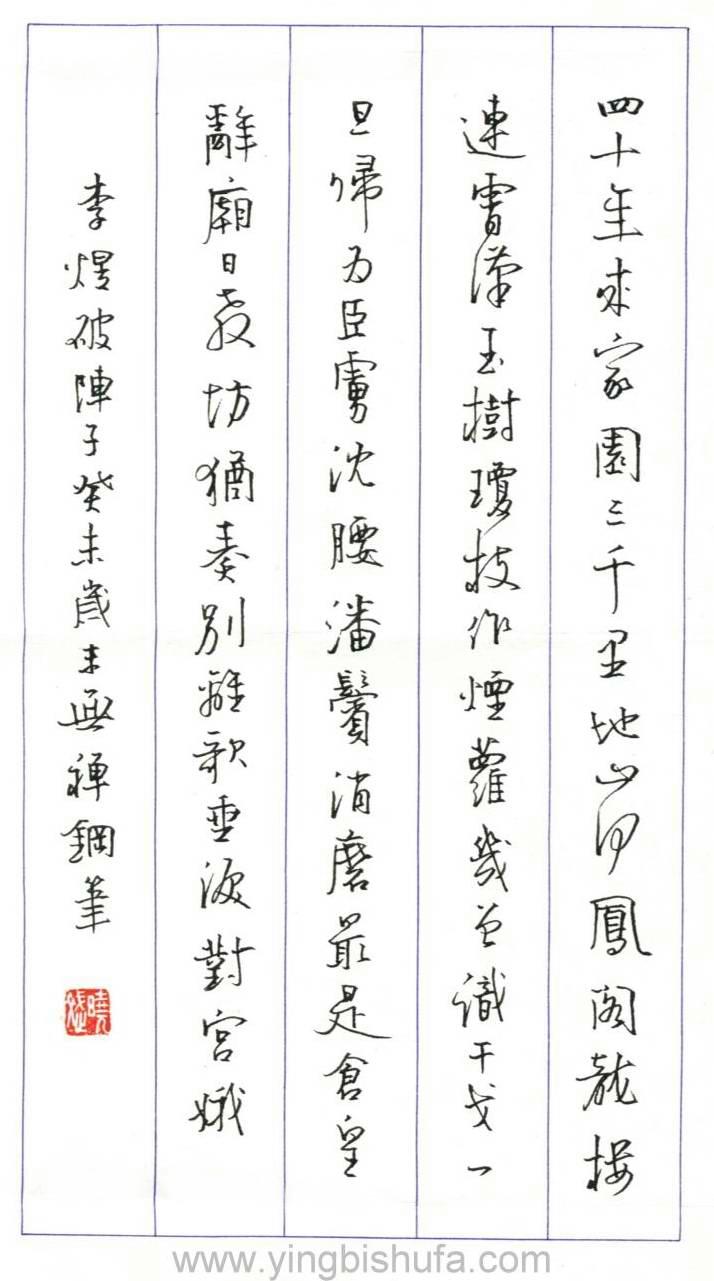 四十年來家園三千里地山河鳳閣龍樓
連霄漢玉樹瓊枝作煙蘿幾曾識干戈一
旦歸為臣虜沈腰潘鬢消磨最是倉皇
辭廟日教坊猶奏別離歌垂淚對宮娥
李煜破陣子癸未歲末無禪鋼筆
www.yingbishufa.com